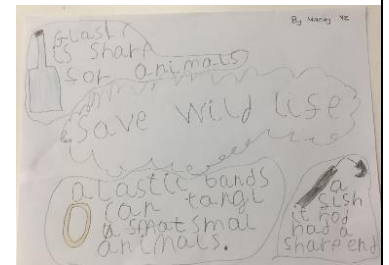 By Macey Y2
Glass
is sharp
for animals
Save wild life
alastic bands
can tangl
a smal
animals.
a
it had
had a
sharp end